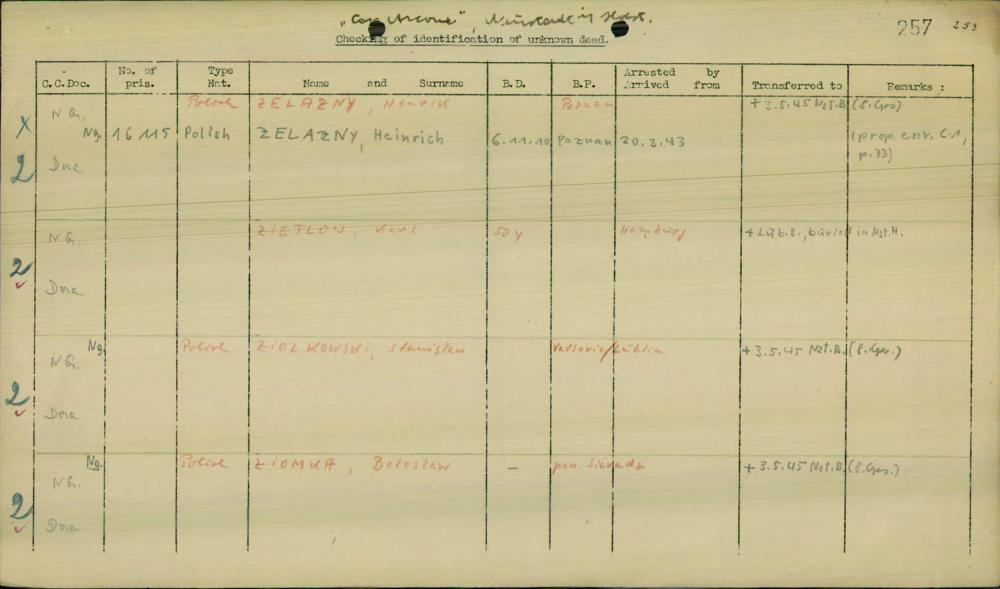 „Cap Arcona“, Neustadt i/ Holst.
257 253
Checking of identification of unknown dead.
C.C.Doc. No. of pris. Type Nat. Name and Surname B.D. B.P. Arrested by Arrived from Transferred to Remarks :
N G. Polish ZELAZNY, Henrik Poznan + 3.5.45 Nst.B. (
x Ng. 16115 Polish ZELAZNY, Heinrich 6.11.10 Poznan 20.3.43 (prop. env. C.1,
p.73)
2 Dora
N G. ZIETLOW, Karl 50 y Hamburg + Lüb.B., buried in Nst.H.
2
Dora
Ng.
N G. Polish ZIOLKOWSKI, Stanislaw Varsovie/Lublin + 3.5.45 Nst.B. (
2
Dora
Ng. Polish ZIOMKA, Boleslaw – pow. Sieradz + 3.5.45 Nst.B. (
N G.
2
Dora